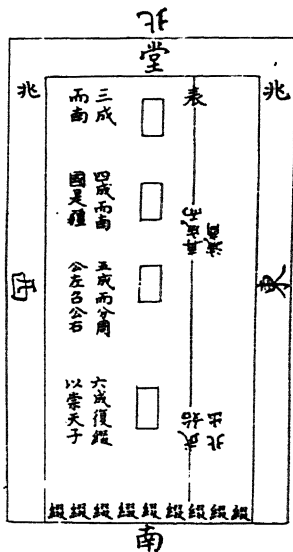 北
堂
兆
兆
表
三成
而南
四成而南
國是疆
五成而分周
公左召公右
六成復綴
以崇天子
再成而
滅商
始成
北出
西
東
綴綴綴綴綴綴綴綴綴
南